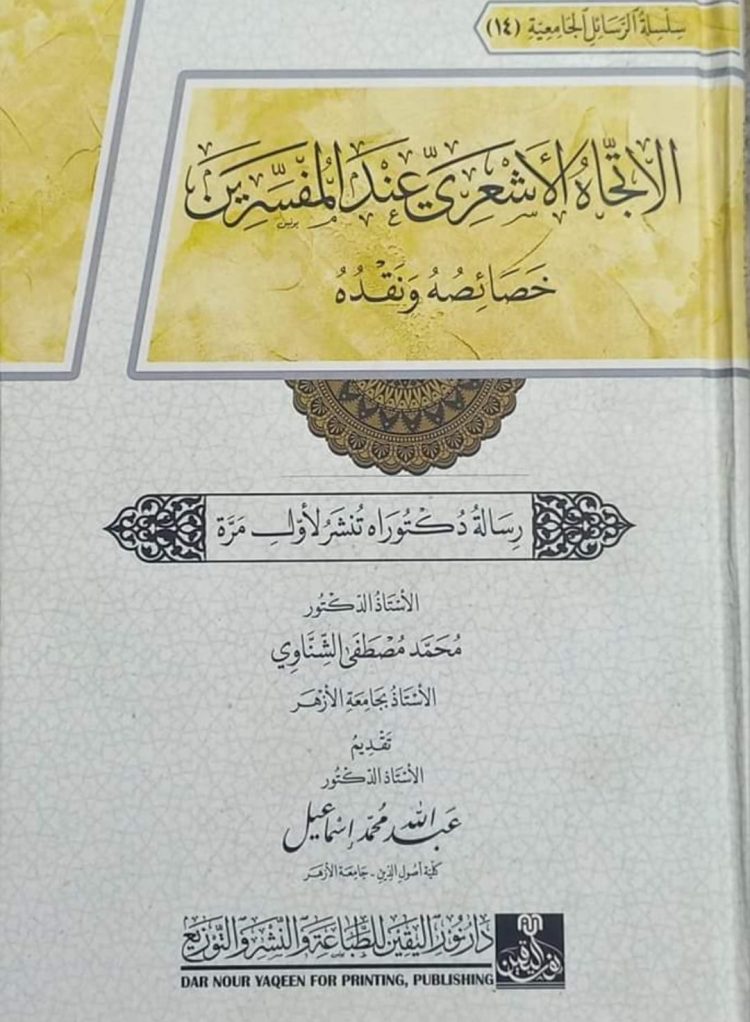 سِلْسِلَةُ الرَّسَائِلِ الجَامِعِيَّةِ (١٤)
الاتِّجَاهُ الأَشْعَرِيُّ عِنْدَ المُفَسِّرِينَ
خَصَائِصُهُ وَنَقْدُهُ
رِسَالَةُ دُكْتُورَاه تُنْشَرُ لأَوَّلِ مَرَّة
الأُسْتَاذُ الدُّكْتُور
مُحَمَّد مُصْطَفَى الشِّنَّاوِي
الأُسْتَاذُ بِجَامِعَةِ الأَزْهَر
تَقْدِيمُ
الأُسْتَاذ الدُّكْتُور
عَبْد اللَّه مُحَمَّد إِسْمَاعِيل
كُلِّيَّة أُصُولِ الدِّينِ - جَامِعَة الأَزْهَر
دَارُ نُورِ اليَقِينِ لِلطِّبَاعَةِ وَالنَّشْرِ وَالتَّوْزِيعِ
DAR NOUR YAQEEN FOR PRINTING, PUBLISHING